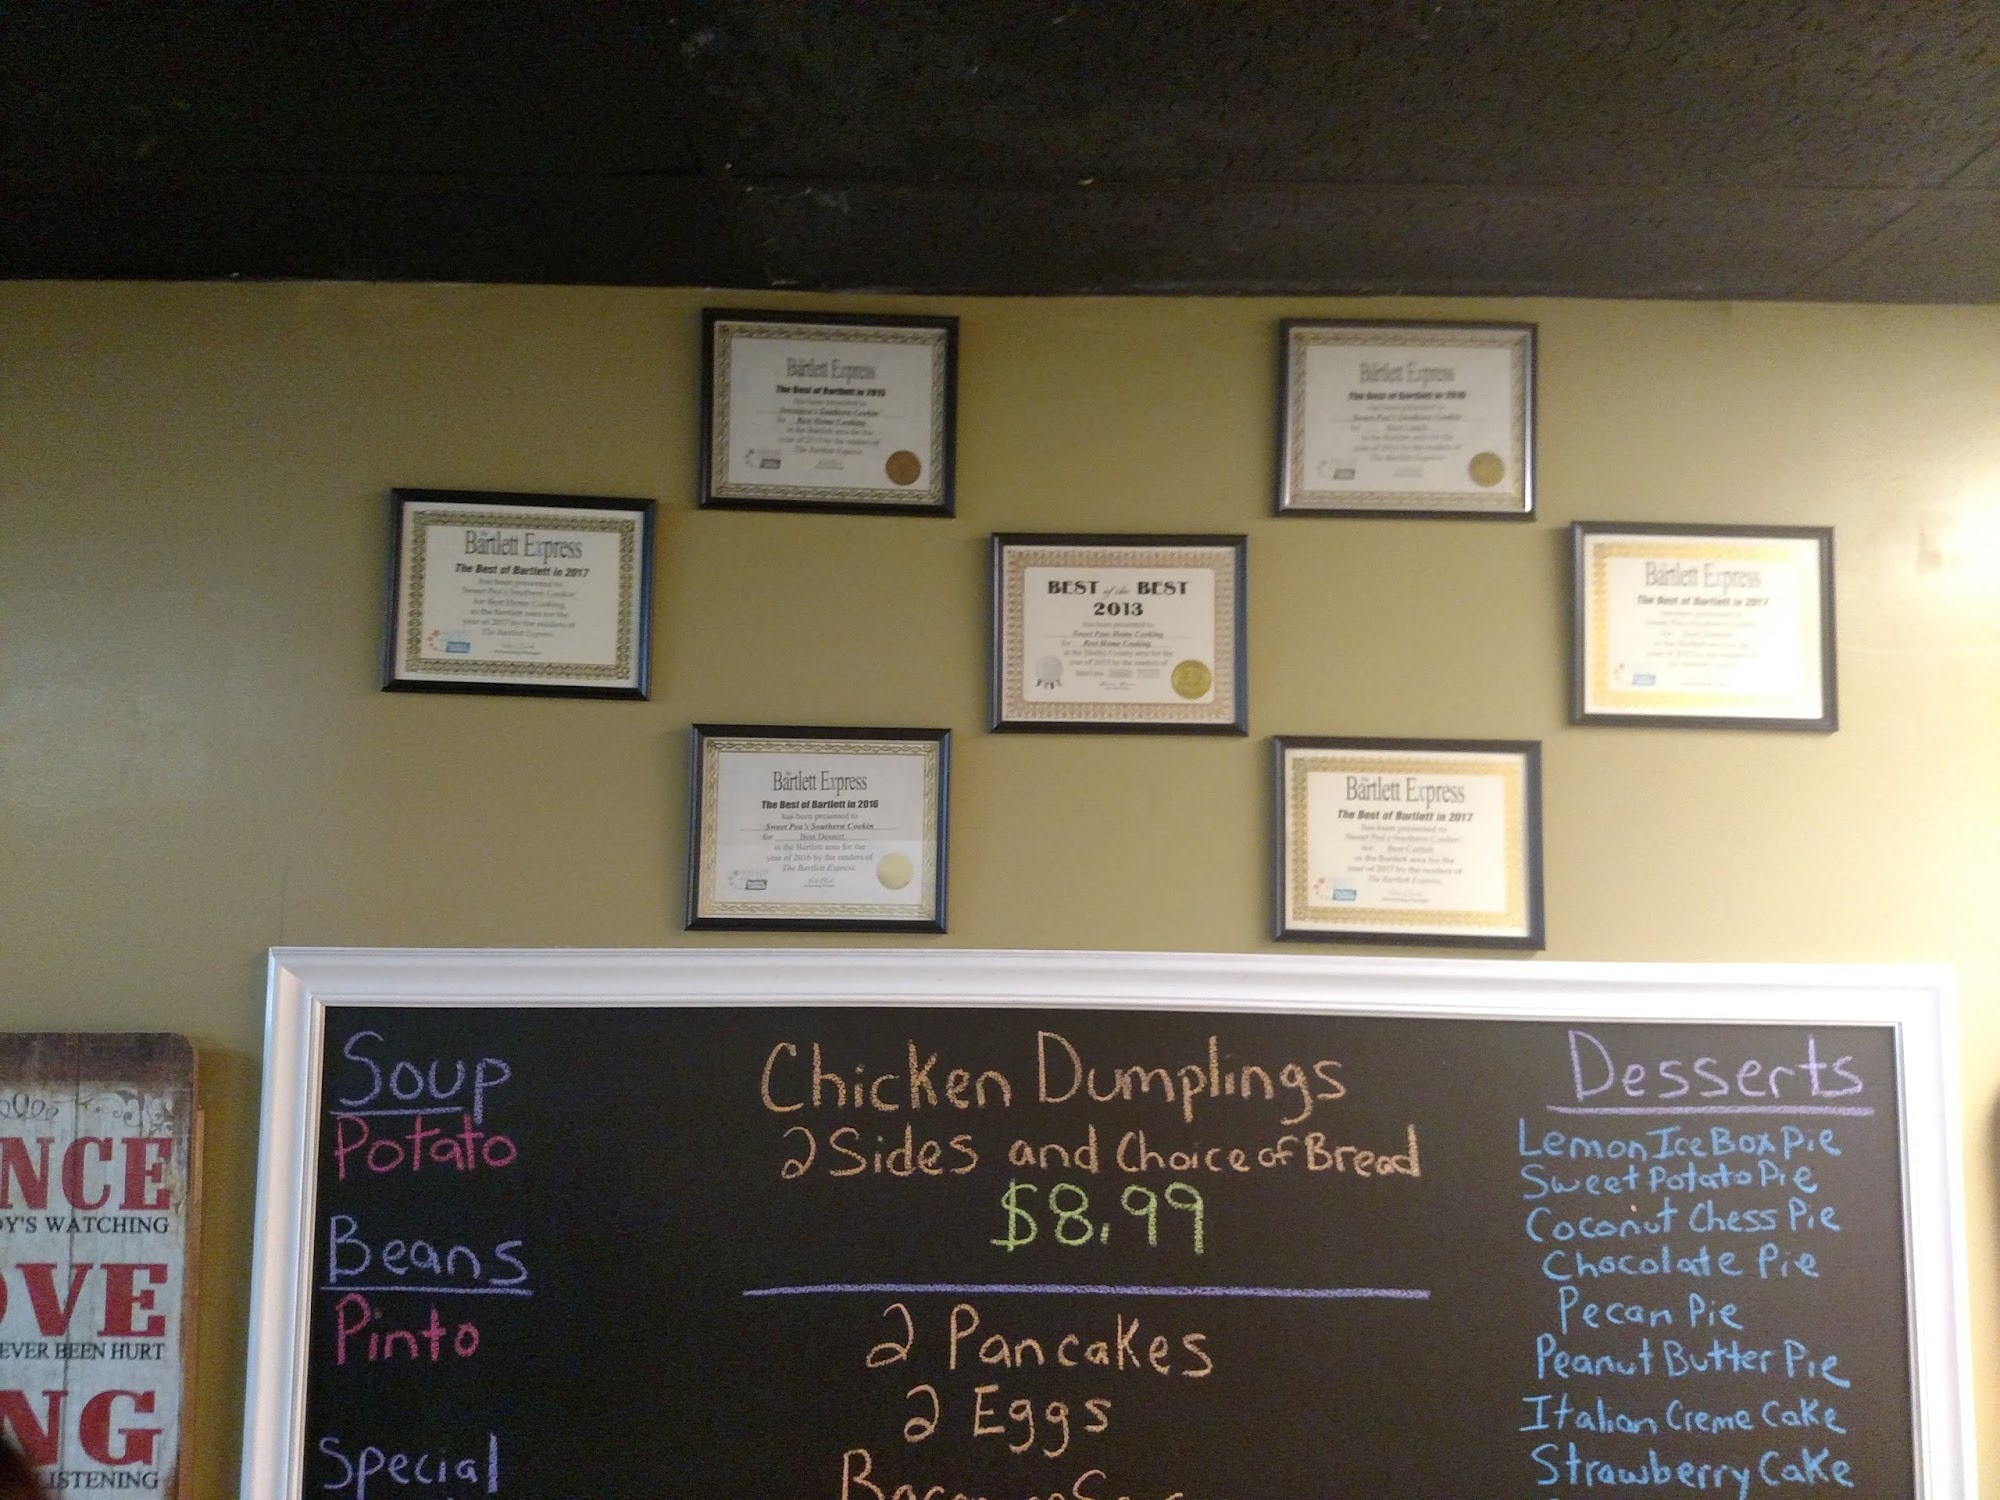 The Bartlett Express
The Best of Bartlett in 2015
has been presented to
Southern Cookin'
for Best Home Cooking
in the Bartlett area for the
year of 2015 by the readers of
The Bartlett Express
The Bartlett Express
The Best of Bartlett in 2016
has been presented to
Sweet Pea's Southern Cookin
for
in the Bartlett area for the
The Bartlett Express
The Bartlett Express
The Best of Bartlett in 2017
has been presented to
Sweet Pea's Southern Cookin'
for Best Home Cooking
in the Bartlett area for the
year of 2017 by the readers of
The Bartlett Express
BEST of the BEST
2013
has been presented to
Sweet Peas Home Cooking
for Best Home Cooking
in the Shelby County area for the
year of 2013 by the readers of
The Bartlett Express
The Best of Bartlett in 2017
The Bartlett Express
The Best of Bartlett in 2016
has been presented to
Sweet Pea's Southern Cookin
for Best Dessert
in the Bartlett area for the
year of 2016 by the readers of
The Bartlett Express
The Bartlett Express
The Best of Bartlett in 2017
has been presented to
Sweet Pea's Southern Cookin'
for Best Catfish
in the Bartlett area for the
year of 2017 by the readers of
The Bartlett Express
NCE
DY'S WATCHING
OVE
EVER BEEN HURT
NG
LISTENING
Soup
Potato
Beans
Pinto
Special
Chicken Dumplings
2 Sides and Choice of Bread
$8.99
2 Pancakes
2 Eggs
Bacon
Desserts
Lemon Ice Box Pie
Sweet Potato Pie
Coconut Chess Pie
Chocolate Pie
Pecan Pie
Peanut Butter Pie
Italian Creme Cake
Strawberry Cake